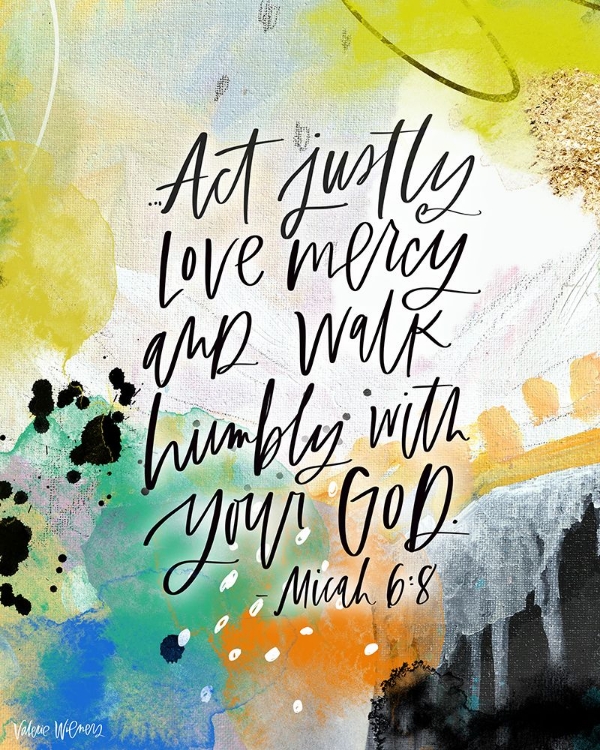 ...Act justly
love mercy
and walk
humbly with
your God.
- Micah 6:8
Valerie Wieners